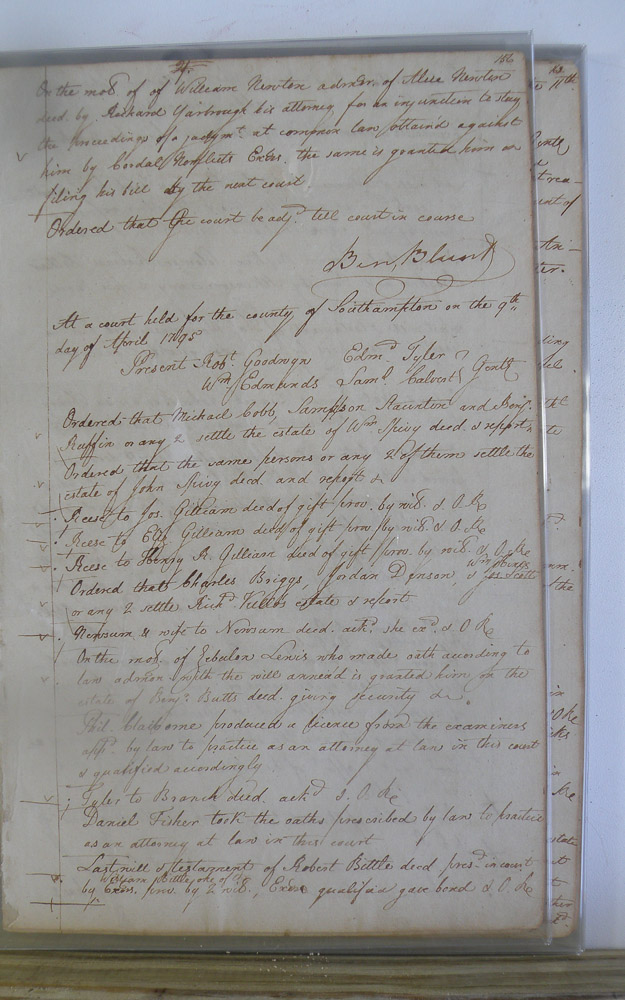 156
On the mo.n of of William Newton admor. of Alice Newton
deced. by Richard Yarbrough his attorney for an injunction to stay
the proceedings of a judgmt. at common law obtain'd against
him by Cordal Norfleets Exors. the same is granted him on
filing his bill by the next court
Ordered that the court be adjd. till court in course
Ben, Blunt
At a court held for the county of Southampton on the 9th.
day of April 1795
Present Robt. Goodwyn Edmd. Tyler
Wm. Edmunds Saml. Calvert Gentl.
Ordered that Michael Cobb, Sampson Staunton and Benj.
Ruffin or any 2 settle the estate of Wm. Spivy deced. & report,
Ordered that the same persons or any 2 of them settle the
estate of John Spivy deced. and report &
Reese to Jos. Gilliam deed of gift prov. by wits. & O Re
Reese to Eliz. Gilliam deed of gift prov. by wits. & O. Re
Reese to Henry A. Gilliam deed of gift prov. by wits. & O. Re
Ordered that Charles Briggs, Jordan Denson, & Jos. Scott
or any 2 settle Richd. estate & report
Newsum & wife to Newsum deed. ackd. she exd. & O Re
On the mo.n of Zebulon Lewis who made oath according to
law admon with the will annexed is granted him on the
estate of Benj. Butts deced. giving security &.
Claiborne produced a licence from the examiners
appd. by law to practice as an attorney at law in this court
& qualified accordingly
Tyler to Branch deed. ackd. & O. Re
Daniel Fisher took the oaths prescribed by law to practice
as an attorney at law in this court
Last will & testament of Robert Bittle deced presd. in court
by William Bittle one of the Exors. prov. by 2 wits., Exor qualified gave bond & O. Re